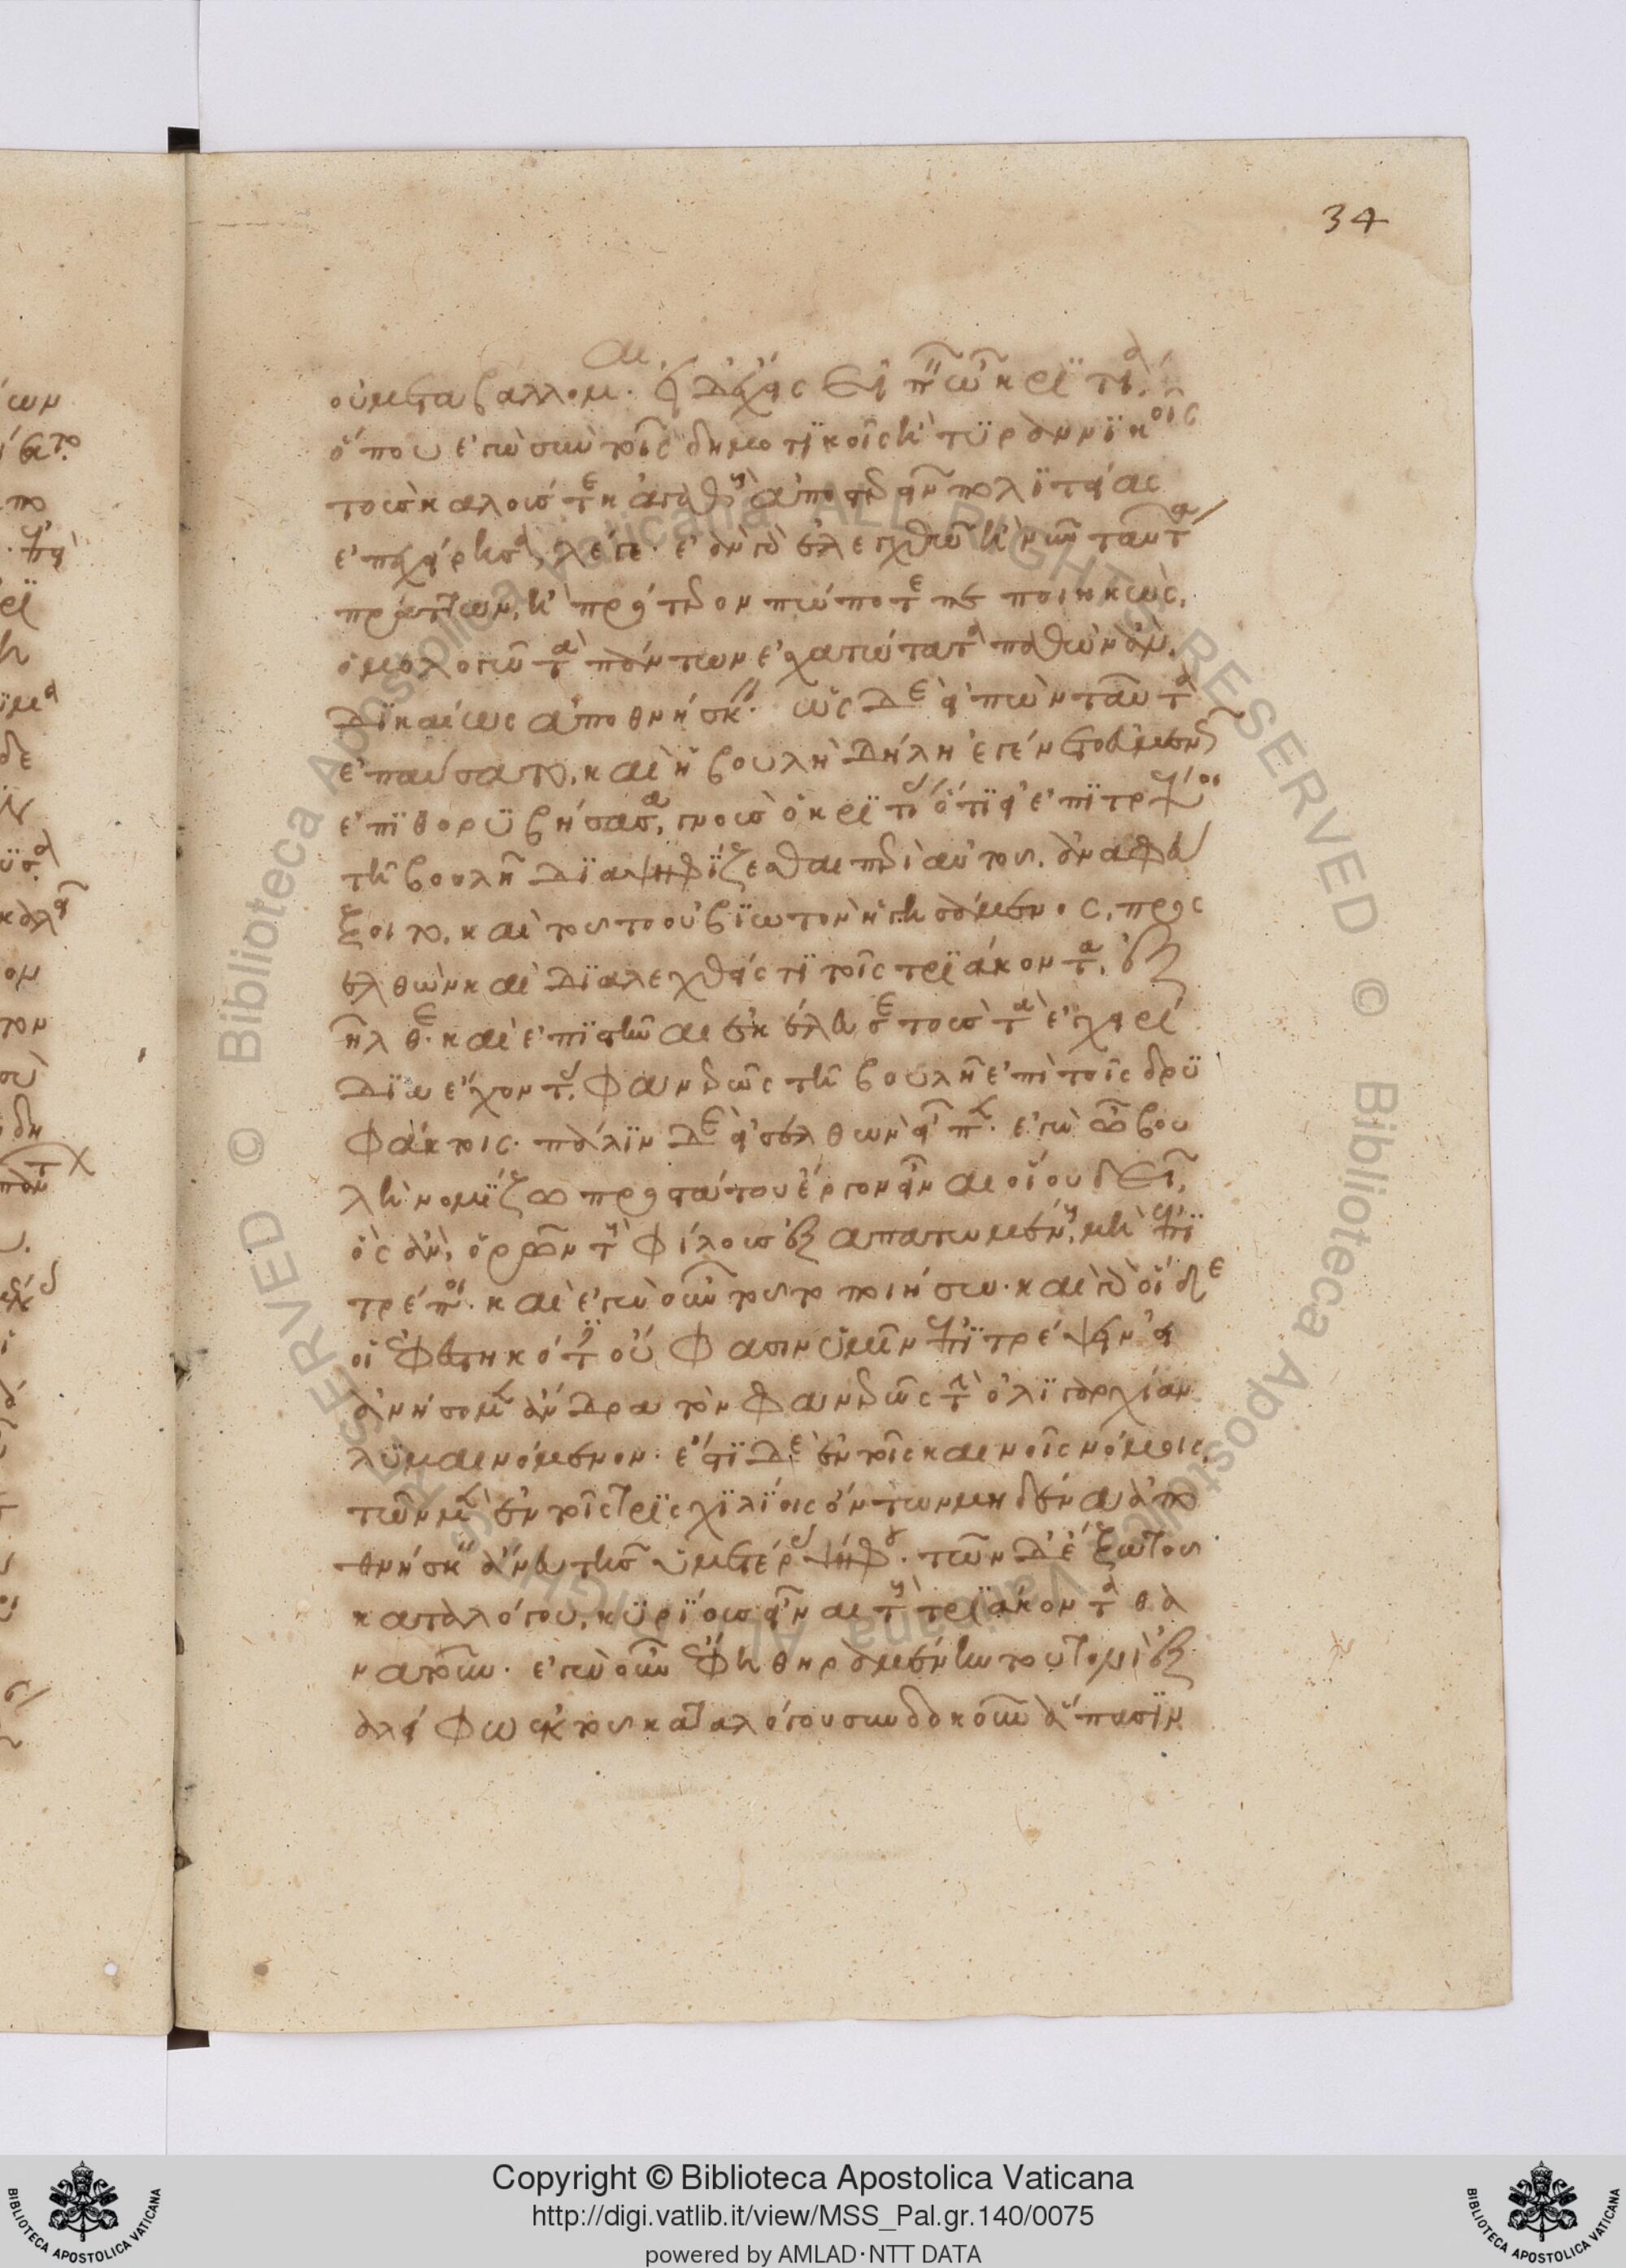 34
οὐ μεταβάλλομαι. εἰ δ' ἔχεις εἰπεῖν ὦ κριτία,
ὅπου ἐγὼ σὺν τοῖς δημοτικοῖς ἢ τυραννικοῖς
τοὺς καλούς τε κἀγαθοὺς ἀποστερεῖν πολιτείας
ἐπεχείρησα, λέγε· ἐὰν γὰρ ἐλεγχθῶ ἢ νῦν ταῦτα
πράττων, ἢ πρότερον πώποτε πεποιηκώς,
ὁμολογῶ τὰ πάντων ἐσχατώτατα παθὼν ἂν
δικαίως ἀποθνήσκειν. ὡς δὲ εἰπὼν ταῦτα
ἐπαύσατο, καὶ ἡ βουλὴ δήλη ἐγένετο εὐμενῶς
ἐπιθορυβήσασα, γνοὺς ὁ κριτίας ὅτι εἰ ἐπιτρέψοι
τῇ βουλῇ διαψηφίζεσθαι περὶ αὐτοῦ, ἀναφεύ
ξοιτο, καὶ τοῦτο οὐ βιωτὸν ἡγησάμενος, προς
ελθὼν καὶ διαλεχθείς τι τοῖς τριάκοντα, ἐξ
ῆλθε. καὶ ἐπιστῆναι ἐκέλευσε τοὺς τὰ ἐγχειρί
δια ἔχοντας, φανερῶς τῇ βουλῇ ἐπὶ τοῖς δρυ
φάκτοις. πάλιν δὲ εἰσελθὼν εἶπεν. ἐγὼ ὦ βου
λὴ νομίζω προστάτου ἔργον εἶναι οἵου δεῖ,
ὃς ἂν, ὁρῶν τοὺς φίλους ἐξαπατωμένους, μὴ ἐπι
τρέποι. καὶ ἐγὼ οὖν τοῦτο ποιήσω. καὶ γὰρ οἵδε
οἱ ἐφεστηκότες οὔ φασιν ὑμῖν ἐπιτρέψειν εἰ
ἀνήσομεν ἄνδρα τὸν φανερῶς τὴν ὀλιγαρχίαν
λυμαινόμενον. ἔστι δὲ ἐν τοῖς καινοῖς νόμοις,
τῶν μὲν ἐν τοῖς τρισχιλίοις ὄντων μηδένα ἀπο
θνήσκειν ἄνευ τῆς ὑμετέρας ψήφου. τῶν δὲ ἔξω τοῦ
καταλόγου, κυρίους εἶναι τοὺς τριάκοντα θα
νατοῦν. ἐγὼ οὖν ἔφη θηραμένην τουτονὶ ἐξ
αλείφω ἐκ τοῦ καταλόγου συνδοκοῦν ἅπασιν
Copyright © Biblioteca Apostolica Vaticana
http://digi.vatlib.it/view/MSS_Pal.gr.140/0075
powered by AMLAD·NTT DATA